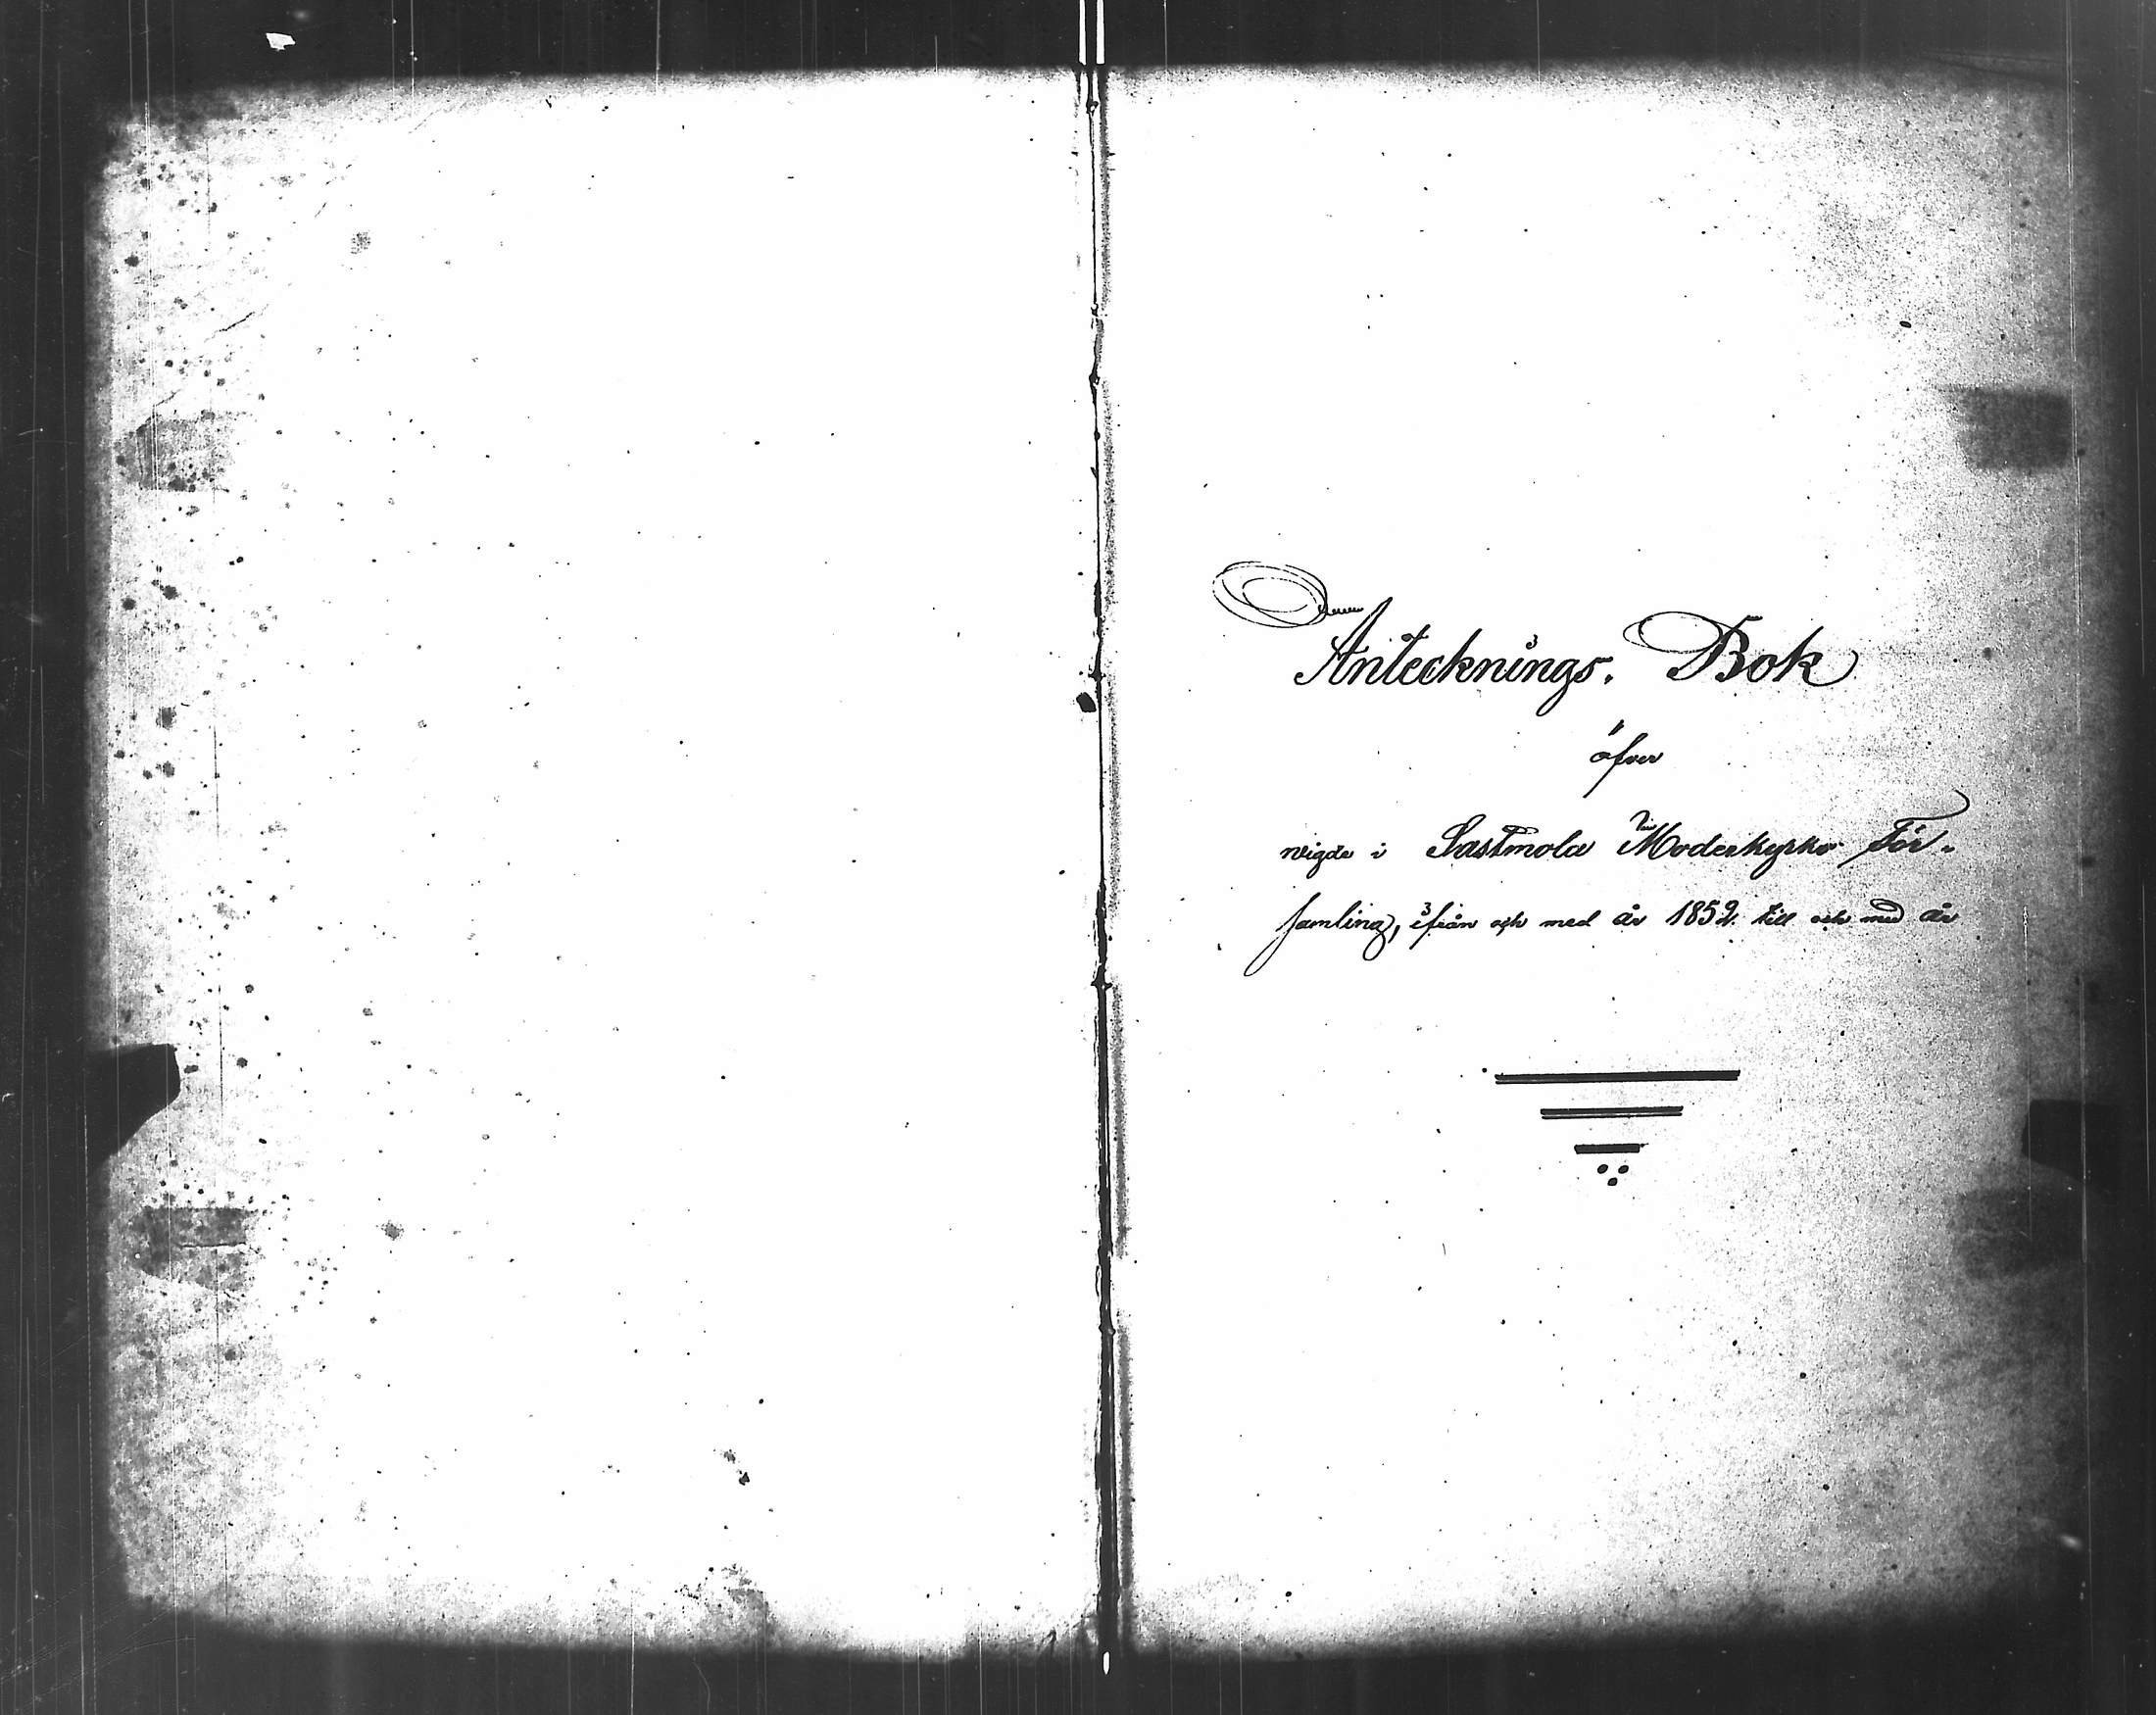 Antecknings-Bok
öfver
vigde i Sastmola Moderkyrko För-
samling, ifrån och med år 1852 till och med år